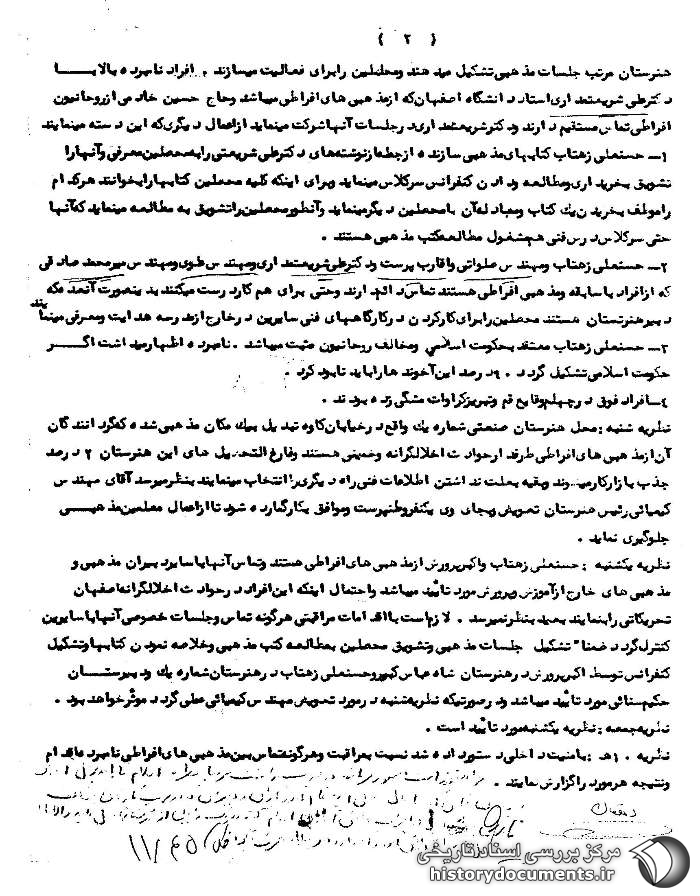 ( ۲ )
هنرستان مرتب جلسات مذهبی تشکیل میدهند و محصلین را برای فعالیت میسازند . افراد نامبرده بالا با
دکتر علی شریعتمداری استاد دانشگاه اصفهان که از مذهبی های افراطی میباشد و حاج حسین خادمی از روحانیون
افراطی تماس مستقیم دارند و دکتر شریعتمداری در جلسات آنها شرکت مینماید از اعمال دیگری که این دسته مینمایند
۱ـ حسنعلی زهتاب کتابهای مذهبی سازنده از جمله از نوشته های دکتر علی شریعتی را به محصلین معرفی و آنها را
تشویق بخریداری و مطالعه و دادن کنفرانس سرکلاس مینماید و برای اینکه کلیه محصلین کتابها را بخوانند هرکدام
را موظف بخریدن یک کتاب و مبادله آن با محصلین دیگر مینماید و آنطور محصلین را تشویق به مطالعه مینماید که آنها
حتی سرکلاس درس فنی هم مشغول مطالعه کتب مذهبی هستند .
۲ـ حسنعلی زهتاب و مهندس صلواتی و اقارب پرست و دکتر علی شریعتمداری و مهندس طوی و مهندس میرمحمد صادقی
که از افراد با سابقه و مذهبی افراطی هستند تماس دائم دارند و حتی برای هم کار درست میکنند بدینصورت آنعده که
دبیر هنرستان هستند محصلین را برای کارکردن در کارگاههای فنی سایرین در خارج از مدرسه هدایت و معرفی مینمایند
۳ـ حسنعلی زهتاب معتقد بحکومت اسلامی و مخالف روحانیون مثبت میباشد . نامبرده اظهار میداشت اگر
حکومت اسلامی تشکیل گردد . ۶ درصد این آخوندها را باید نابود کرد .
٤ـ افراد فوق در چهلم وقایع قم و تبریز کراوات مشکی زده بودند .
نظریه شنبه : محل هنرستان صنعتی شماره یک واقع در خیابان کاوه تبدیل بیک مکان مذهبی شده که گردانندگان
آن از مذهبی های افراطی طرفدار حوادث اخلالگرانه و خمینی هستند و فارغ التحصیل های این هنرستان ۲ درصد
جذب بازار کار میشوند و بقیه بعلت نداشتن اطلاعات فنی راه دیگری را انتخاب مینمایند بنظر میرسد آقای مهندس
کیمیائی رئیس هنرستان تعویض و بجای وی یکنفر وطنپرست و موافق بکار گمارده شود تا از اعمال معلمین مذهبی
جلوگیری نماید .
نظریه یکشنبه : حسنعلی زهتاب و اکبر پرورش از مذهبی های افراطی هستند و تماس آنها با سایر دبیران مذهبی و
مذهبی های خارج از آموزش و پرورش مورد تأیید میباشد و احتمال اینکه این افراد در حوادث اخلالگرانه اصفهان
تحریکاتی را بنمایند بعید بنظر نمیرسد . لازم است با اقدامات مراقبتی هرگونه تماس و جلسات خصوصی آنها با سایرین
کنترل گردد ضمناً تشکیل جلسات مذهبی و تشویق محصلین بمطالعه کتب مذهبی و خلاصه نمودن کتابها و تشکیل
کنفرانس توسط اکبر پرورش در هنرستان شاه عباس کبیر و حسنعلی زهتاب در هنرستان شماره یک و دبیرستان
حکیم سنائی مورد تأیید میباشد و در صورتیکه نظریه شنبه در مورد تعویض مهندس کیمیائی عملی گردد موثر خواهد بود .
نظریه جمعه : نظریه یکشنبه مورد تأیید است .
نظریه ۱۰ هـ : بامنیت داخلی دستور داده شد نسبت بمراقبت و هرگونه تماس بین مذهبی های افراطی نامبرده اقدام
و نتیجه هر مورد را گزارش نمایند .
دهقان
مرکز بررسی اسناد تاریخی
historydocuments.ir